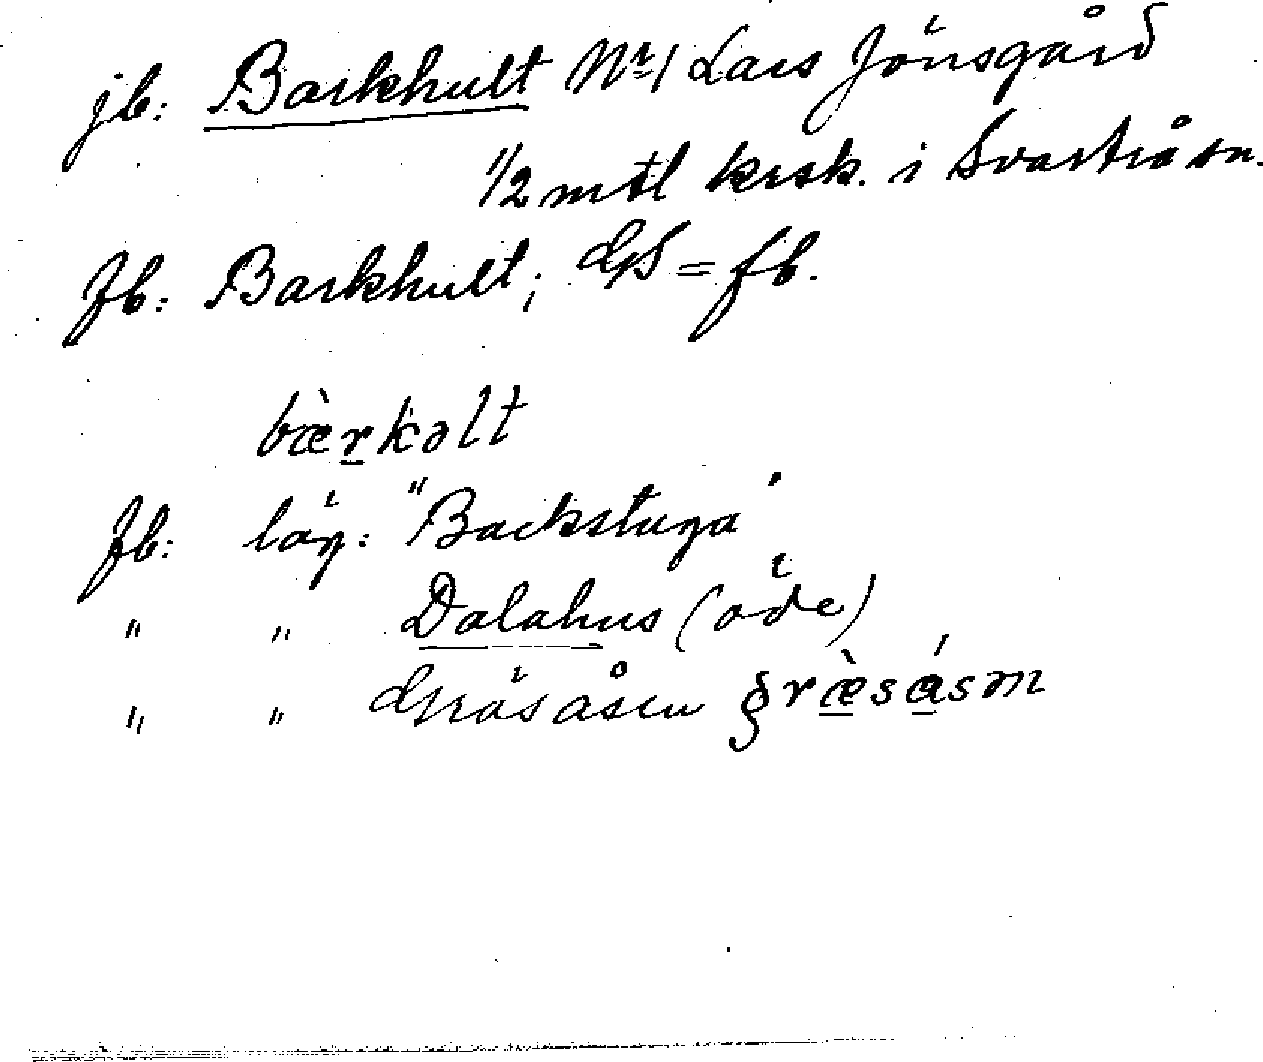 jb: Barkhult Nr 1 Lars Jönsgård
1/2 mtl krsk. i Svartrå sn.
fb: Barkhult; GS = fb.
bæ̀r̠kəlt
fb: läg: "Backstuga"
" " Dalahus (öde)
" " Gräsåsen græ̀sásən